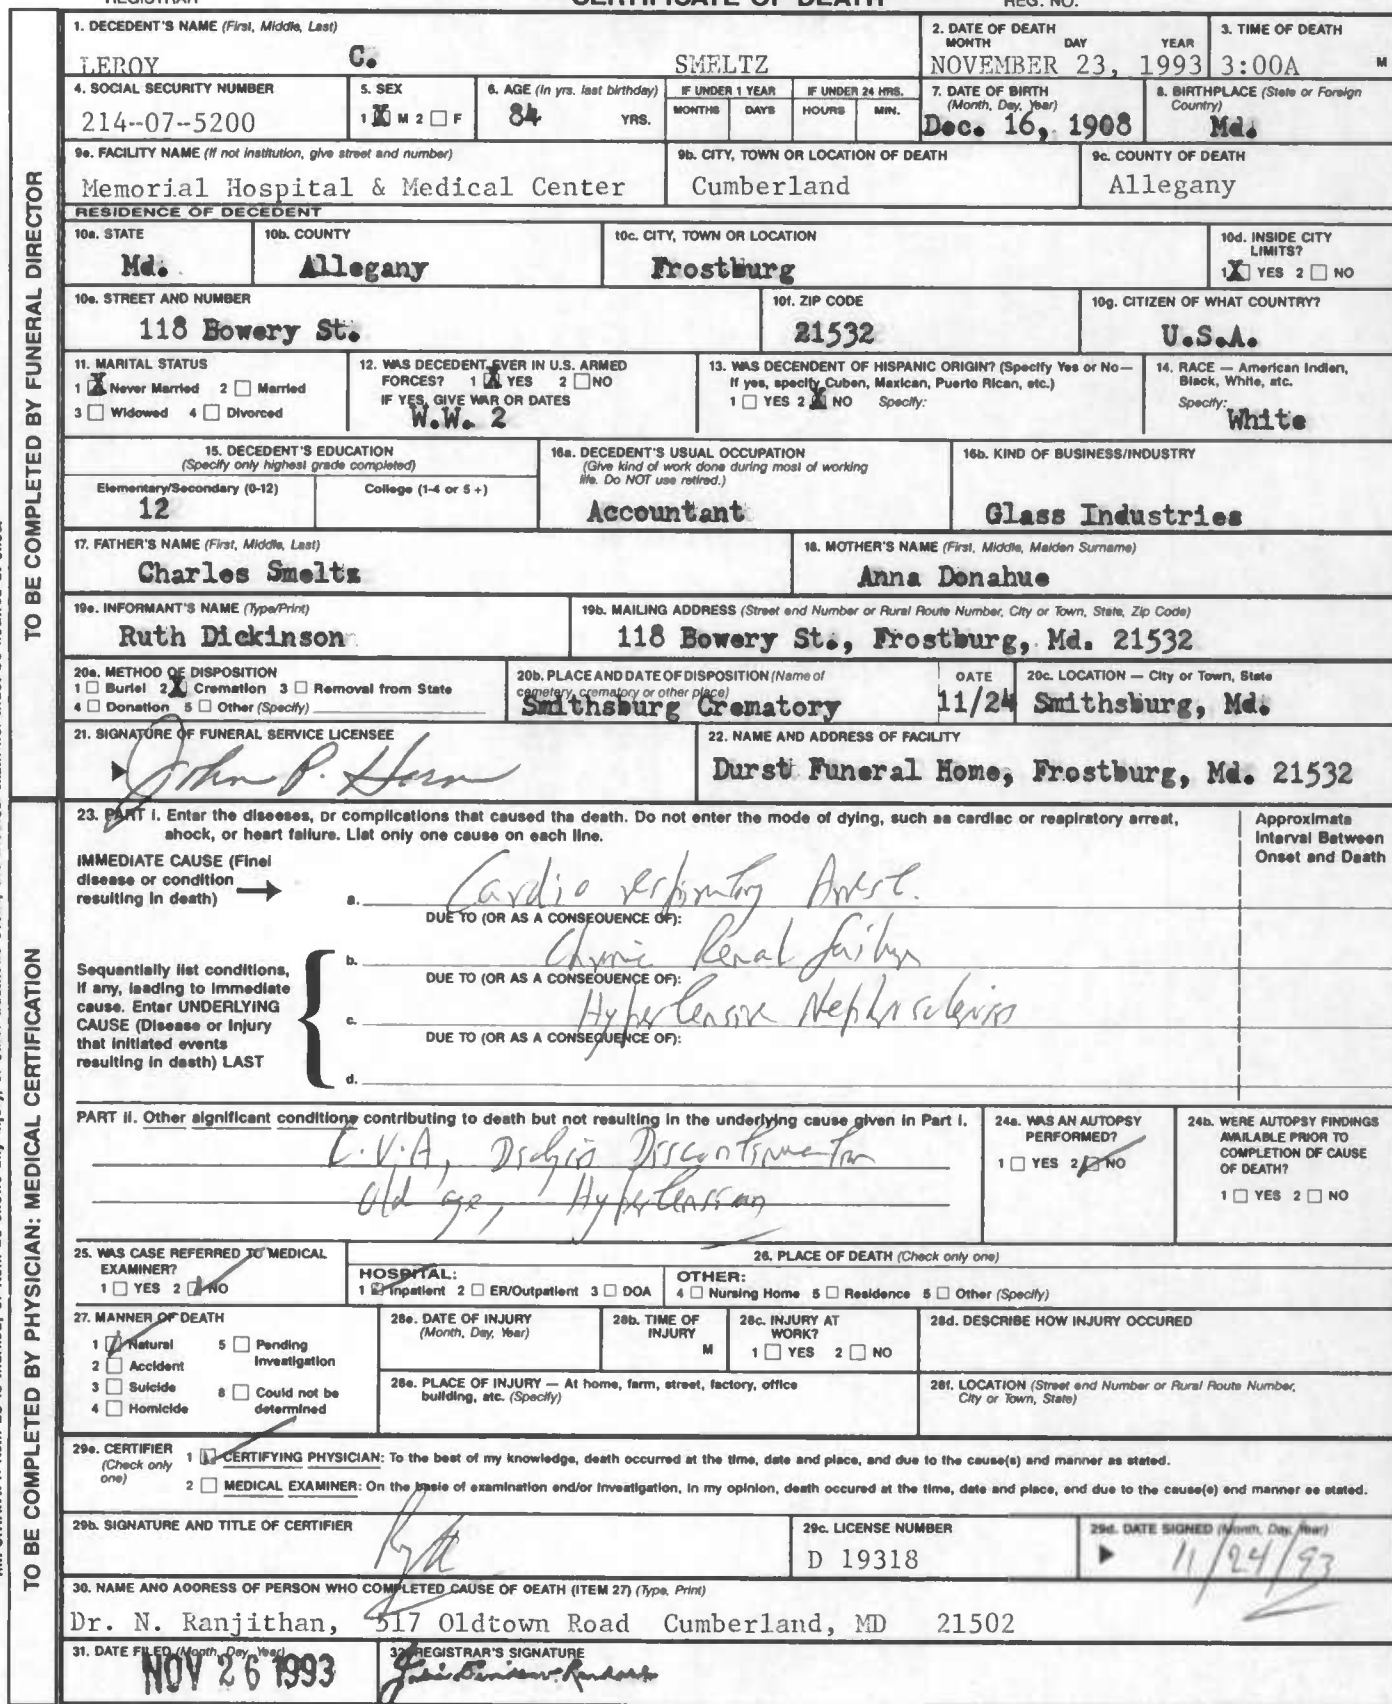 CERTIFICATE OF DEATH
REGISTRAR
REG. NO.
TO BE COMPLETED BY FUNERAL DIRECTOR
1. DECEDENT'S NAME (First, Middle, Last)
LEROY C. SMELTZ
2. DATE OF DEATH
MONTH DAY YEAR
NOVEMBER 23, 1993
3. TIME OF DEATH
3:00A M
4. SOCIAL SECURITY NUMBER
214-07-5200
5. SEX
1 X M 2 F
6. AGE (In yrs. last birthday)
84 YRS.
IF UNDER 1 YEAR
MONTHS DAYS
IF UNDER 24 HRS.
HOURS MIN.
7. DATE OF BIRTH
(Month, Day, Year)
Dec. 16, 1908
8. BIRTHPLACE (State or Foreign
Country)
Md.
9a. FACILITY NAME (If not institution, give street and number)
Memorial Hospital & Medical Center
9b. CITY, TOWN OR LOCATION OF DEATH
Cumberland
9c. COUNTY OF DEATH
Allegany
RESIDENCE OF DECEDENT
10a. STATE
Md.
10b. COUNTY
Allegany
10c. CITY, TOWN OR LOCATION
Frostburg
10d. INSIDE CITY
LIMITS?
1 X YES 2 NO
10e. STREET AND NUMBER
118 Bowery St.
10f. ZIP CODE
21532
10g. CITIZEN OF WHAT COUNTRY?
U.S.A.
11. MARITAL STATUS
1 X Never Married 2 Married
3 Widowed 4 Divorced
12. WAS DECEDENT EVER IN U.S. ARMED
FORCES? 1 X YES 2 NO
IF YES, GIVE WAR OR DATES
W.W. 2
13. WAS DECENDENT OF HISPANIC ORIGIN? (Specify Yes or No—
If yes, specify Cuben, Maxican, Puerto Rican, etc.)
1 YES 2 X NO Specify:
14. RACE — American Indien,
Black, White, atc.
Specify:
White
15. DECEDENT'S EDUCATION
(Specify only highest grade completed)
Elementary/Secondary (0-12)
12
College (1-4 or 5+)
16a. DECEDENT'S USUAL OCCUPATION
(Give kind of work done during most of working
life. Do NOT use retired.)
Accountant
16b. KIND OF BUSINESS/INDUSTRY
Glass Industries
17. FATHER'S NAME (First, Middle, Last)
Charles Smeltz
18. MOTHER'S NAME (First, Middle, Maiden Surname)
Anna Donahue
19a. INFORMANT'S NAME (Type/Print)
Ruth Dickinson
19b. MAILING ADDRESS (Street and Number or Rural Route Number, City or Town, State, Zip Code)
118 Bowery St., Frostburg, Md. 21532
20a. METHOD OF DISPOSITION
1 Buriel 2 X Cremation 3 Removal from State
4 Donation 5 Other (Specify)
20b. PLACE AND DATE OF DISPOSITION (Name of
cemetery, crematory or other place)
Smithsburg Crematory
DATE
11/24
20c. LOCATION — City or Town, State
Smithsburg, Md.
21. SIGNATURE OF FUNERAL SERVICE LICENSEE
John P.
22. NAME AND ADDRESS OF FACILITY
Durst Funeral Home, Frostburg, Md. 21532
TO BE COMPLETED BY PHYSICIAN: MEDICAL CERTIFICATION
23. PART I. Enter the diseeses, or complications that caused tha death. Do not enter the mode of dying, such as cardiac or reapiratory arreat,
ahock, or heart failure. Liat only one cause on each line.
Approximata
Interval Batween
Onset and Daath
IMMEDIATE CAUSE (Finel
disease or condition
resulting in death)
a. Cardio respiratory Arrest.
DUE TO (OR AS A CONSEQUENCE OF):
b. Chronic Renal failure
DUE TO (OR AS A CONSEQUENCE OF):
c. Hypertensive Nephrosclerosis
DUE TO (OR AS A CONSEQUENCE OF):
d.
Sequentially list conditions,
If any, laading to Immediate
cause. Enter UNDERLYING
CAUSE (Disease or Injury
that initiated events
resulting in death) LAST
PART II. Other aignificant conditions contributing to death but not resulting in the underlying cause given in Part I.
C.V.A, Dialysis Discontinuation
Old age, Hypertension
24a. WAS AN AUTOPSY
PERFORMED?
1 YES 2 NO
24b. WERE AUTOPSY FINDINGS
AVAILABLE PRIOR TO
COMPLETION OF CAUSE
OF DEATH?
1 YES 2 NO
25. WAS CASE REFERRED TO MEDICAL
EXAMINER?
1 YES 2 NO
26. PLACE OF DEATH (Check only one)
HOSPITAL:
1 Inpatient 2 ER/Outpatient 3 DOA
OTHER:
4 Nursing Home 5 Residence 6 Other (Specify)
27. MANNER OF DEATH
1 Natural 5 Pending
Investigation
2 Accident
3 Suicide 8 Could not be
determined
4 Homicide
28a. DATE OF INJURY
(Month, Day, Year)
28b. TIME OF
INJURY
M
28c. INJURY AT
WORK?
1 YES 2 NO
28d. DESCRIBE HOW INJURY OCCURED
28e. PLACE OF INJURY — At home, farm, street, factory, office
building, atc. (Specify)
28f. LOCATION (Street and Number or Rural Route Number,
City or Town, State)
29a. CERTIFIER
(Check only
one)
1 CERTIFYING PHYSICIAN: To the best of my knowledge, death occurred at the time, date and place, and due to the cause(s) and manner as stated.
2 MEDICAL EXAMINER: On the basis of examination end/or Investigation, in my opinion, death occured at the time, date and place, end due to the cause(e) end manner ee stated.
29b. SIGNATURE AND TITLE OF CERTIFIER
29c. LICENSE NUMBER
D 19318
29d. DATE SIGNED (Month, Day, Year)
11/24/93
30. NAME AND ADDRESS OF PERSON WHO COMPLETED CAUSE OF DEATH (ITEM 27) (Type, Print)
Dr. N. Ranjithan, 517 Oldtown Road Cumberland, MD 21502
31. DATE FILED (Month, Day, Year)
NOV 26 1993
32. REGISTRAR'S SIGNATURE